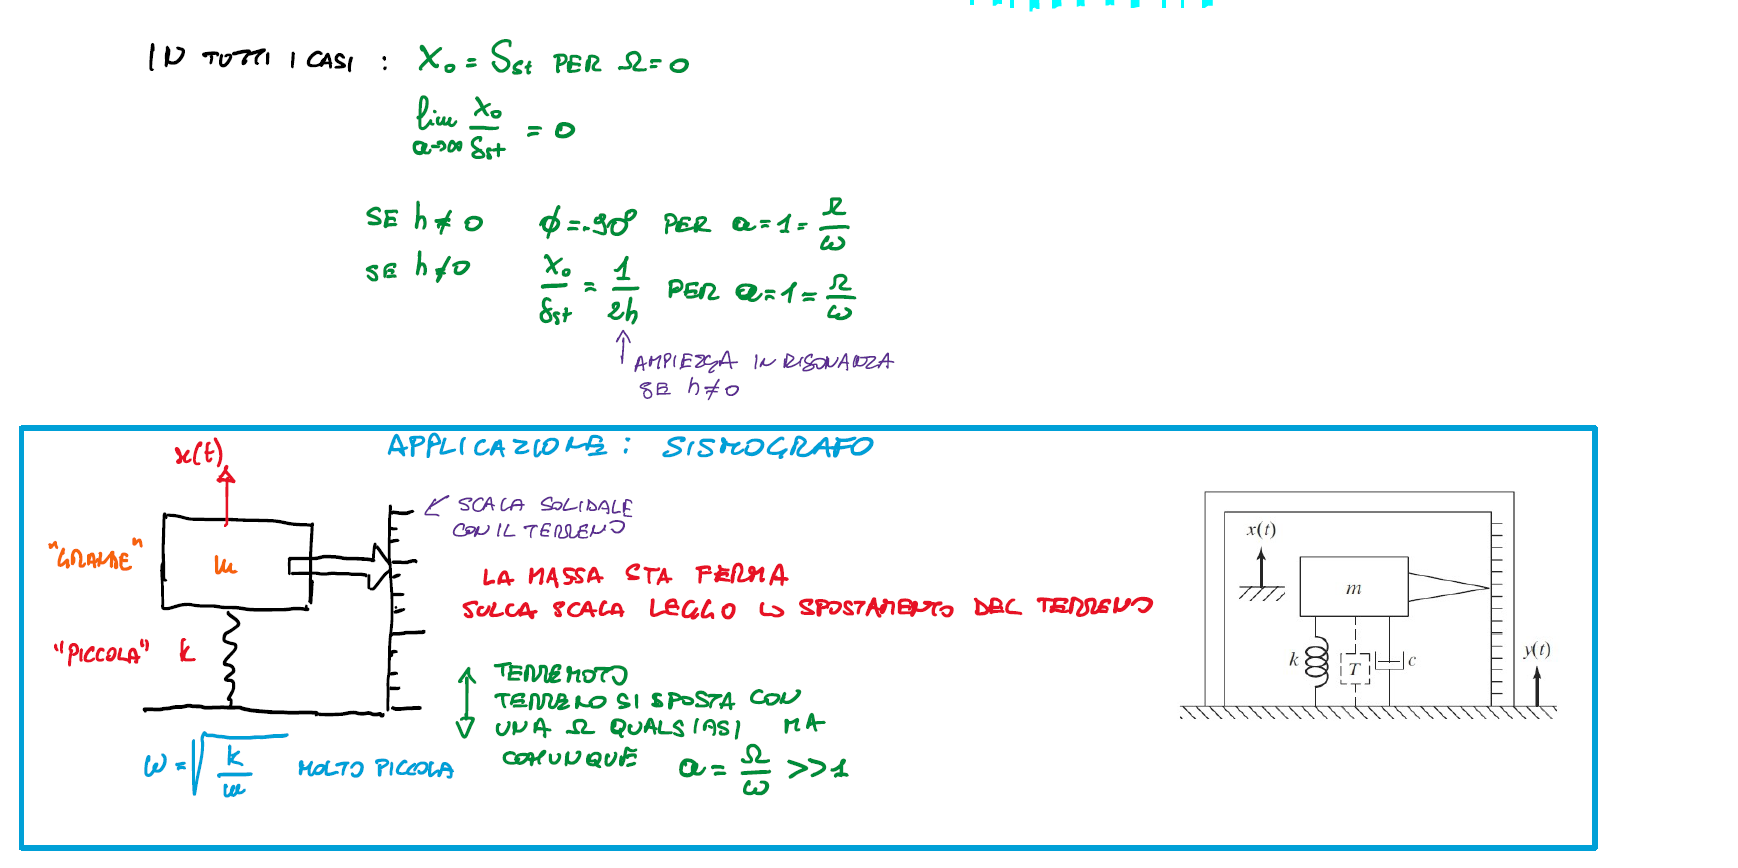 IN TUTTI I CASI : X₀ = δst PER Ω = 0
lim a→∞ X₀/δst = 0
SE h ≠ 0 ϕ = -90° PER a = 1 = Ω/ω
SE h ≠ 0 X₀/δst = 1/2h PER a = 1 = Ω/ω
↑ AMPIEZZA IN RISONANZA
SE h ≠ 0
APPLICAZIONE : SISMOGRAFO
x(t)
SCALA SOLIDALE
CON IL TERRENO
"GRANDE" m
LA MASSA STA FERMA
SULLA SCALA LEGGO LO SPOSTAMENTO DEL TERRENO
"PICCOLA" k
TERREMOTO
TERRENO SI SPOSTA CON
UNA Ω QUALSIASI MA
COMUNQUE a = Ω/ω >> 1
ω = √(k/m) MOLTO PICCOLA
x(t)
m
k T c
y(t)